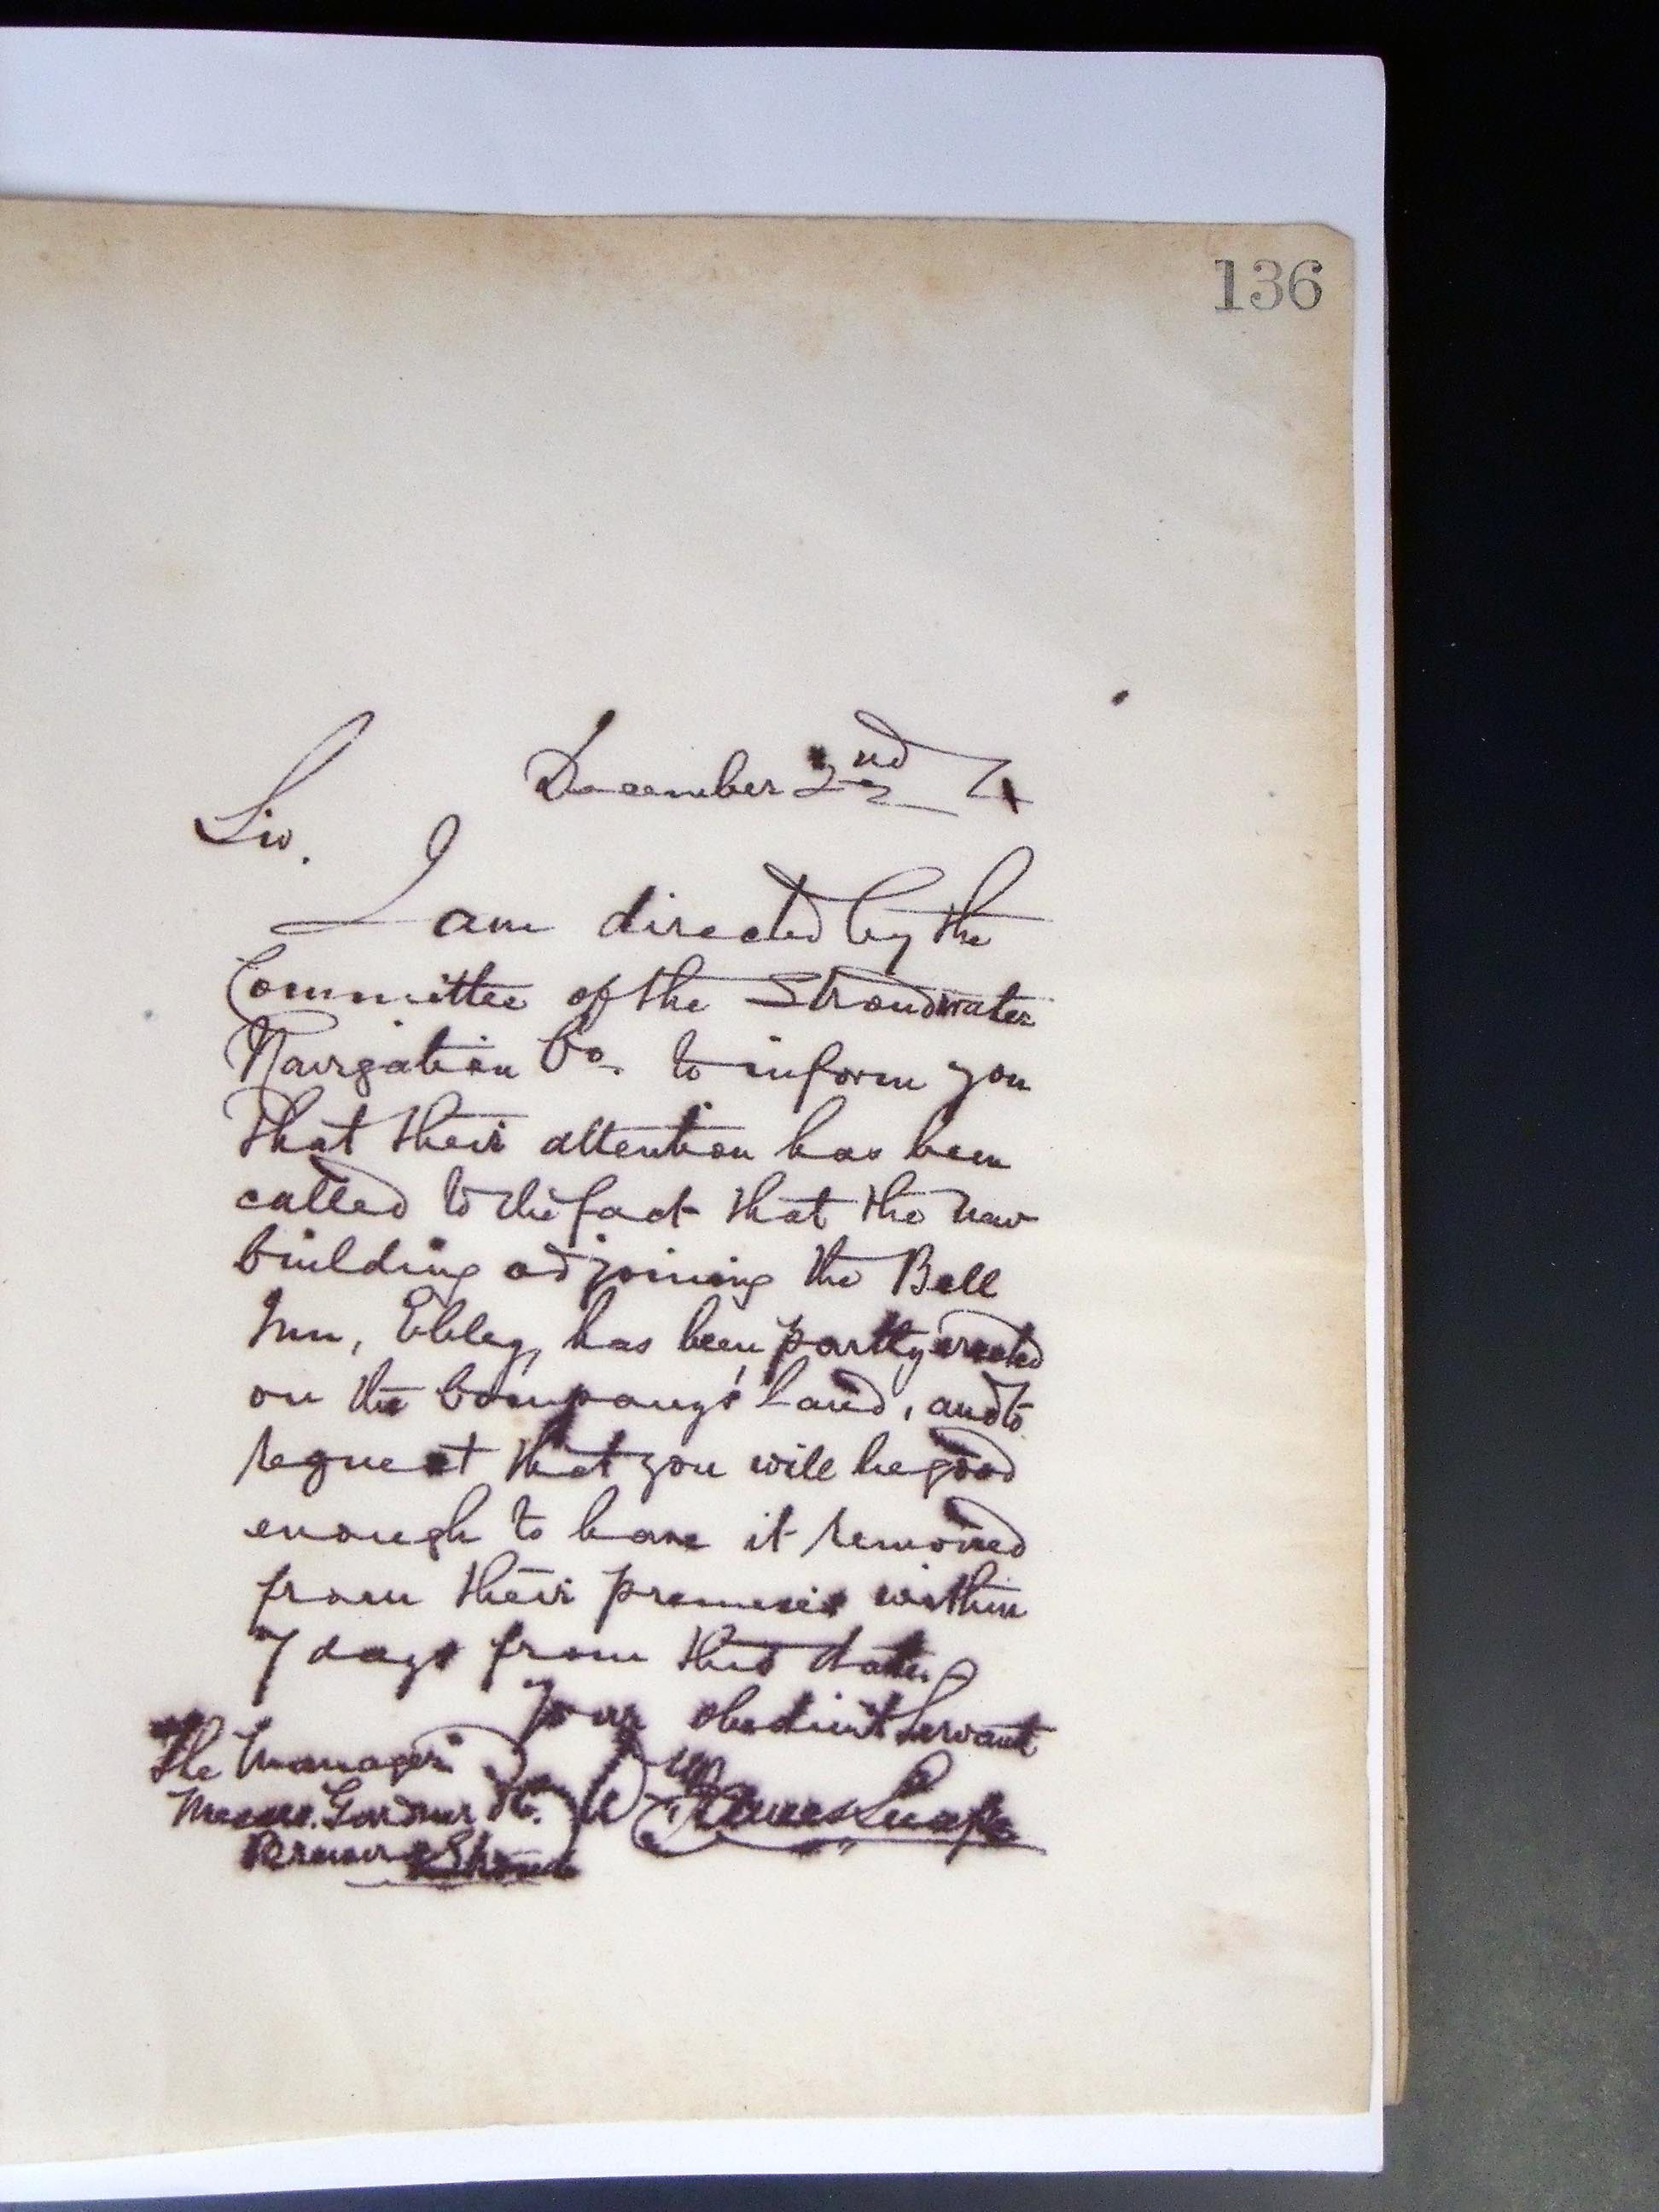 136
December 2nd
Sir.
I am directed by the
Committee of the Stroudwater
Navigation Co. to inform you
that their attention has been
called to the fact that the new
building adjoining the Bell
Inn, Ebley, has been partly erected
on the Company's land, and to
request that you will be good
enough to have it removed
from their premises within
7 days from this date.
Your obedient Servant
The Manager
Messrs. Godsell & Co.
Stroud